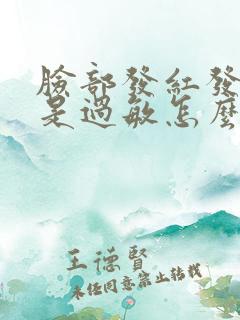 臉部發紅發
是過敏怎麼
王德賢
未经同意禁止转载